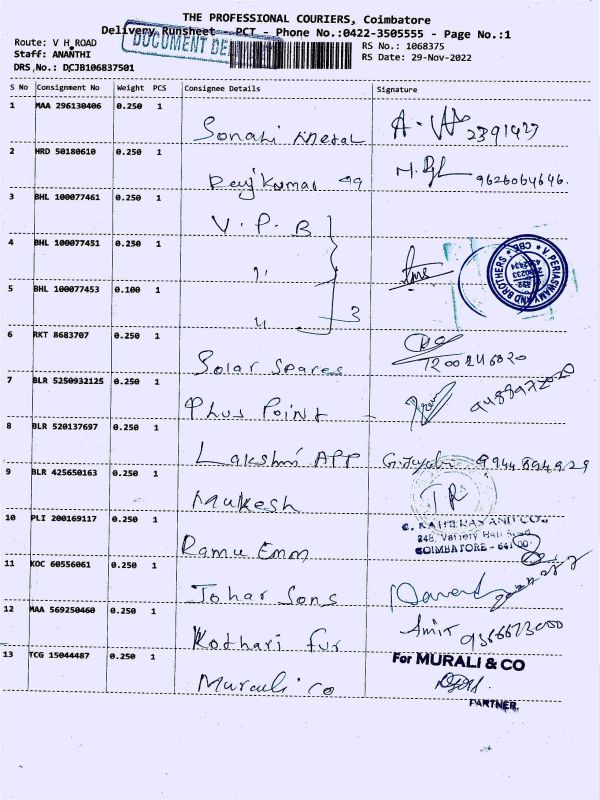 THE PROFESSIONAL COURIERS, Coimbatore
Delivery Runsheet - PCT - Phone No.:0422-3505555 - Page No.:1
DOCUMENT DE
Route: V H ROAD
RS No.: 1068375
Staff: ANANTHI
RS Date: 29-Nov-2022
DRS No.: DCJB106837501
S No Consignment No Weight PCS Consignee Details Signature
1 MAA 296130406 0.250 1 Sonali Metal 2391427
2 HRD 50180610 0.250 1 Rajkumar 99 9626064646.
3 BHL 100077461 0.250 1 V.P.B
4 BHL 100077451 0.250 1 "
V. PERIASWAMY AND BROTHERS * CBE *
5 BHL 100077453 0.100 1 " 3
6 RKT 8683707 0.250 1 Solar Spares 7200246020
7 BLR 5250932125 0.250 1 Plus Point
8 BLR 520137697 0.250 1 Lakshmi APP 9944894929
9 BLR 425650163 0.250 1 Mukesh
10 PLI 200169117 0.250 1 Ramu Emm
248, Variety Hall Road
COIMBATORE - 641 001
11 KOC 60556061 0.250 1 Johar Sons
12 MAA 569250460 0.250 1 Kothari fur Amit 9366623000
13 TCG 15044487 0.250 1 Murali Co
For MURALI & CO
PARTNER.